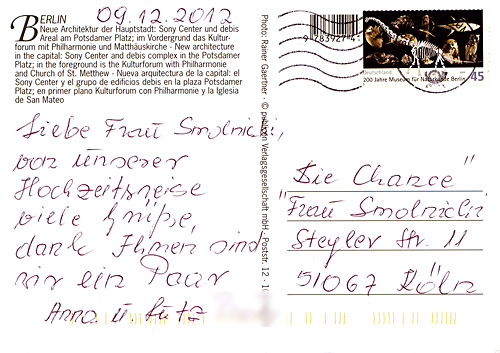 BERLIN
09.12.2012
Neue Architektur der Hauptstadt: Sony Center und debis
Areal am Potsdamer Platz; im Vordergrund das Kultur-
forum mit Philharmonie und Matthäuskirche - New architecture
in the capital: Sony Center and debis complex in the Potsdamer
Platz; in the foreground is the Kulturforum with Philharmonie
and Church of St. Metthew - Nueva arquitectura de la capital: el
Sony Center y el grupo de edificios debis en la plaza Potsdamer
Platz; en primer plano Kulturforum con Philharmonie y la Iglesia
de San Mateo
Liebe Frau Smolniclin,
von unserer
Hochzeitsreise
viele Grüße,
dank Ihnen sind
wir ein Paar
Anna u. Lutz
Photo: Rainer Gaertner · © publicon Verlagsgesellschaft mbH · Poststr. 12 - 1
Deutschland
200 Jahre Museum für Naturkunde Berlin
45
"Die Chance"
Frau Smolniclin
Steyler Str. 11
51067 Köln